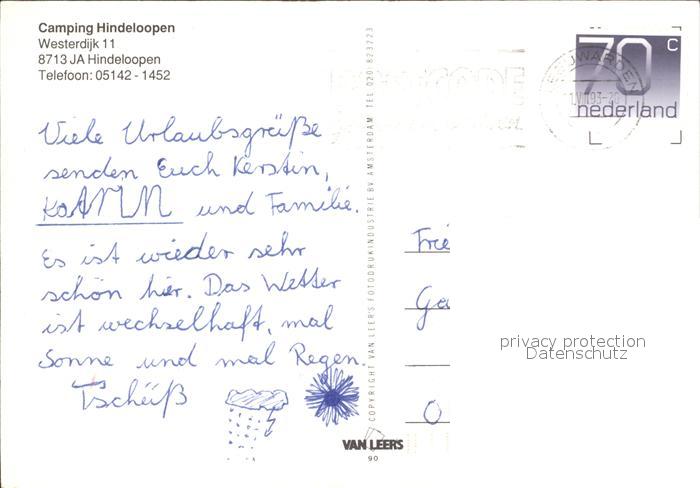 Camping Hindeloopen
Westerdijk 11
8713 JA Hindeloopen
Telefoon: 05142 - 1452
Viele Urlaubsgrüße
senden Euch Kerstin,
und Familie.
Es ist wieder sehr
schön hier. Das Wetter
ist wechselhaft, mal
Sonne und mal Regen.
Tschüß
COPYRIGHT VAN LEER'S FOTODRUKINDUSTRIE BV AMSTERDAM TEL 020-823223
VAN LEER'S
90
70 c
nederland
LEEUWARDEN
Frie
Ge
O
privacy protection
Datenschutz